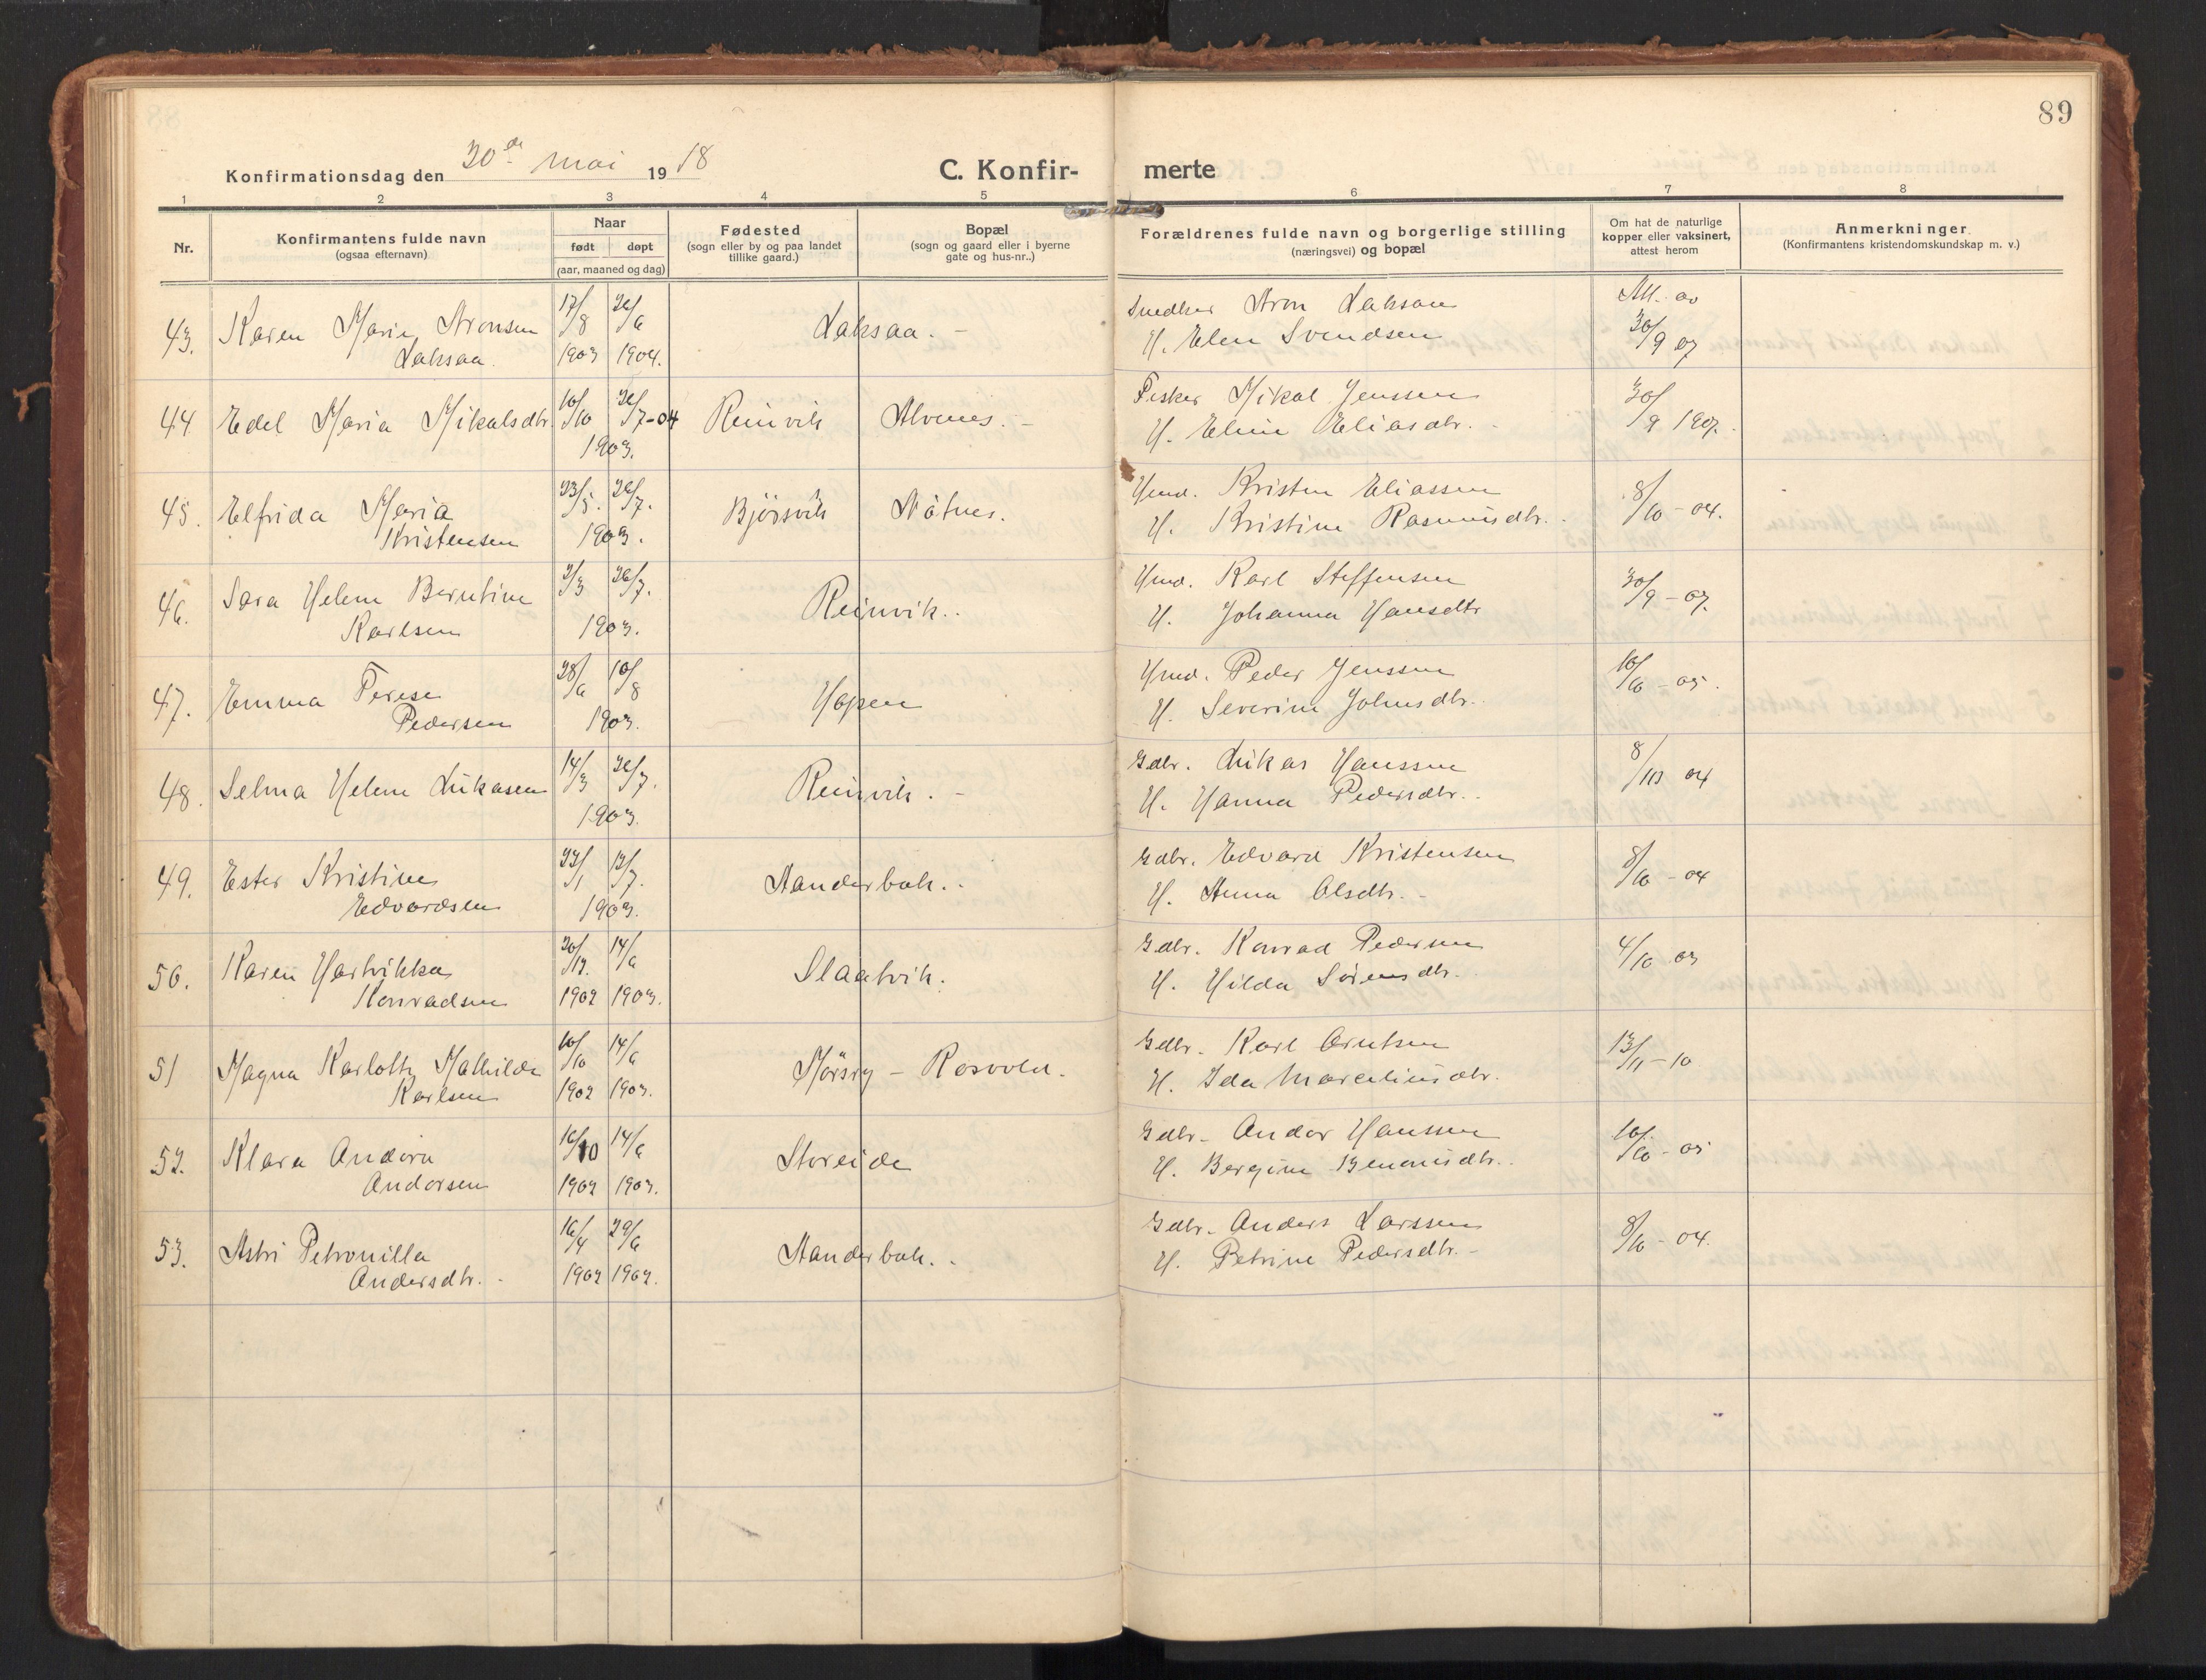 89
Konfirmationsdag den 30de mai 1918
C. Konfir- merte
1 2 3 4 5 6 7 8
Nr.
Konfirmantens fulde navn
(ogsaa efternavn)
Naar
født døpt
(aar, maaned og dag)
Fødested
(sogn eller by og paa landet
tillike gaard.)
Bopæl
(sogn og gaard eller i byerne
gate og hus-nr..)
Forældrenes fulde navn og borgerlige stilling
(næringsvei) og bopæl
Om hat de naturlige
kopper eller vaksinert,
attest herom
Anmerkninger
(Konfirmantens kristendomskundskap m. v.)
43. Karen Marie Aronsen 17/8 26/6 Laksaa. - Snedker Aron Laksaa Att. av
Laksaa 1903 1904. H. Elen Svendsen 30/9 07
44. Edel Maria Mikalsdtr. 10/10 26/7-04 Reinvik Alvenes. - Fisker Mikal Jenssen 30/9 1907.
1903. H. Eline Eliasdtr. -
45. Elfrida Maria 23/5. 26/7. Bjørsvik Nåtnes. Gmd. Kristen Eliassen 8/10 - 04.
Kristensen 1903. H. Kristine Rasmusdtr.
46. Sara Helene Berntine 2/3 26/7. Reinvik.. Gmd. Karl Steffensen 30/9 - 07.
Karlsen 1903. H. Johanna Hansdtr
47. Emma Terese 28/6 10/8 Hopen Gmd. Peder Jenssen 10/10 - 05.
Pedersen 1903. H. Severine Johnsdtr.
48. Selma Helene Lukasen 14/3 26/7. Reinvik. - Gdbr. Lukas Hanssen 8/10 04
1903. H. Hanna Pedersdtr.
49. Ester Kristine 22/1 12/7. Aanderbak.. Gdbr. Edvard Kristensen 8/10 - 04
Edvardsen 1903. H. Anna Olsdtr. -
50. Karen Hartvikka 20/12. 14/6 Slaatvik. Gdbr. Konrad Pedersen 4/10 03
Konradsen 1902 1903. H. Hilda Sørensdtr.
51 Magna Karlotte Mathilde 10/10 14/6 Mørsry - Rosvold. Gdbr. Karl Arntsen 13/11 - 10
Karlsen 1902 1903. H. Ida Marceliusdtr.
52. Klara Andora 16/10 14/6 Storeide Gdbr. Andor Hanssen 10/10 - 05
Andorsen 1902 1903. H. Bergine Benonisdtr..
53. Astri Petronilla 16/4 29/6 Aanderbak.. Gdbr. Anders Larssen 8/10 - 04.
Andersdtr. - 1902 1902. H. Petrine Pedersdtr. -